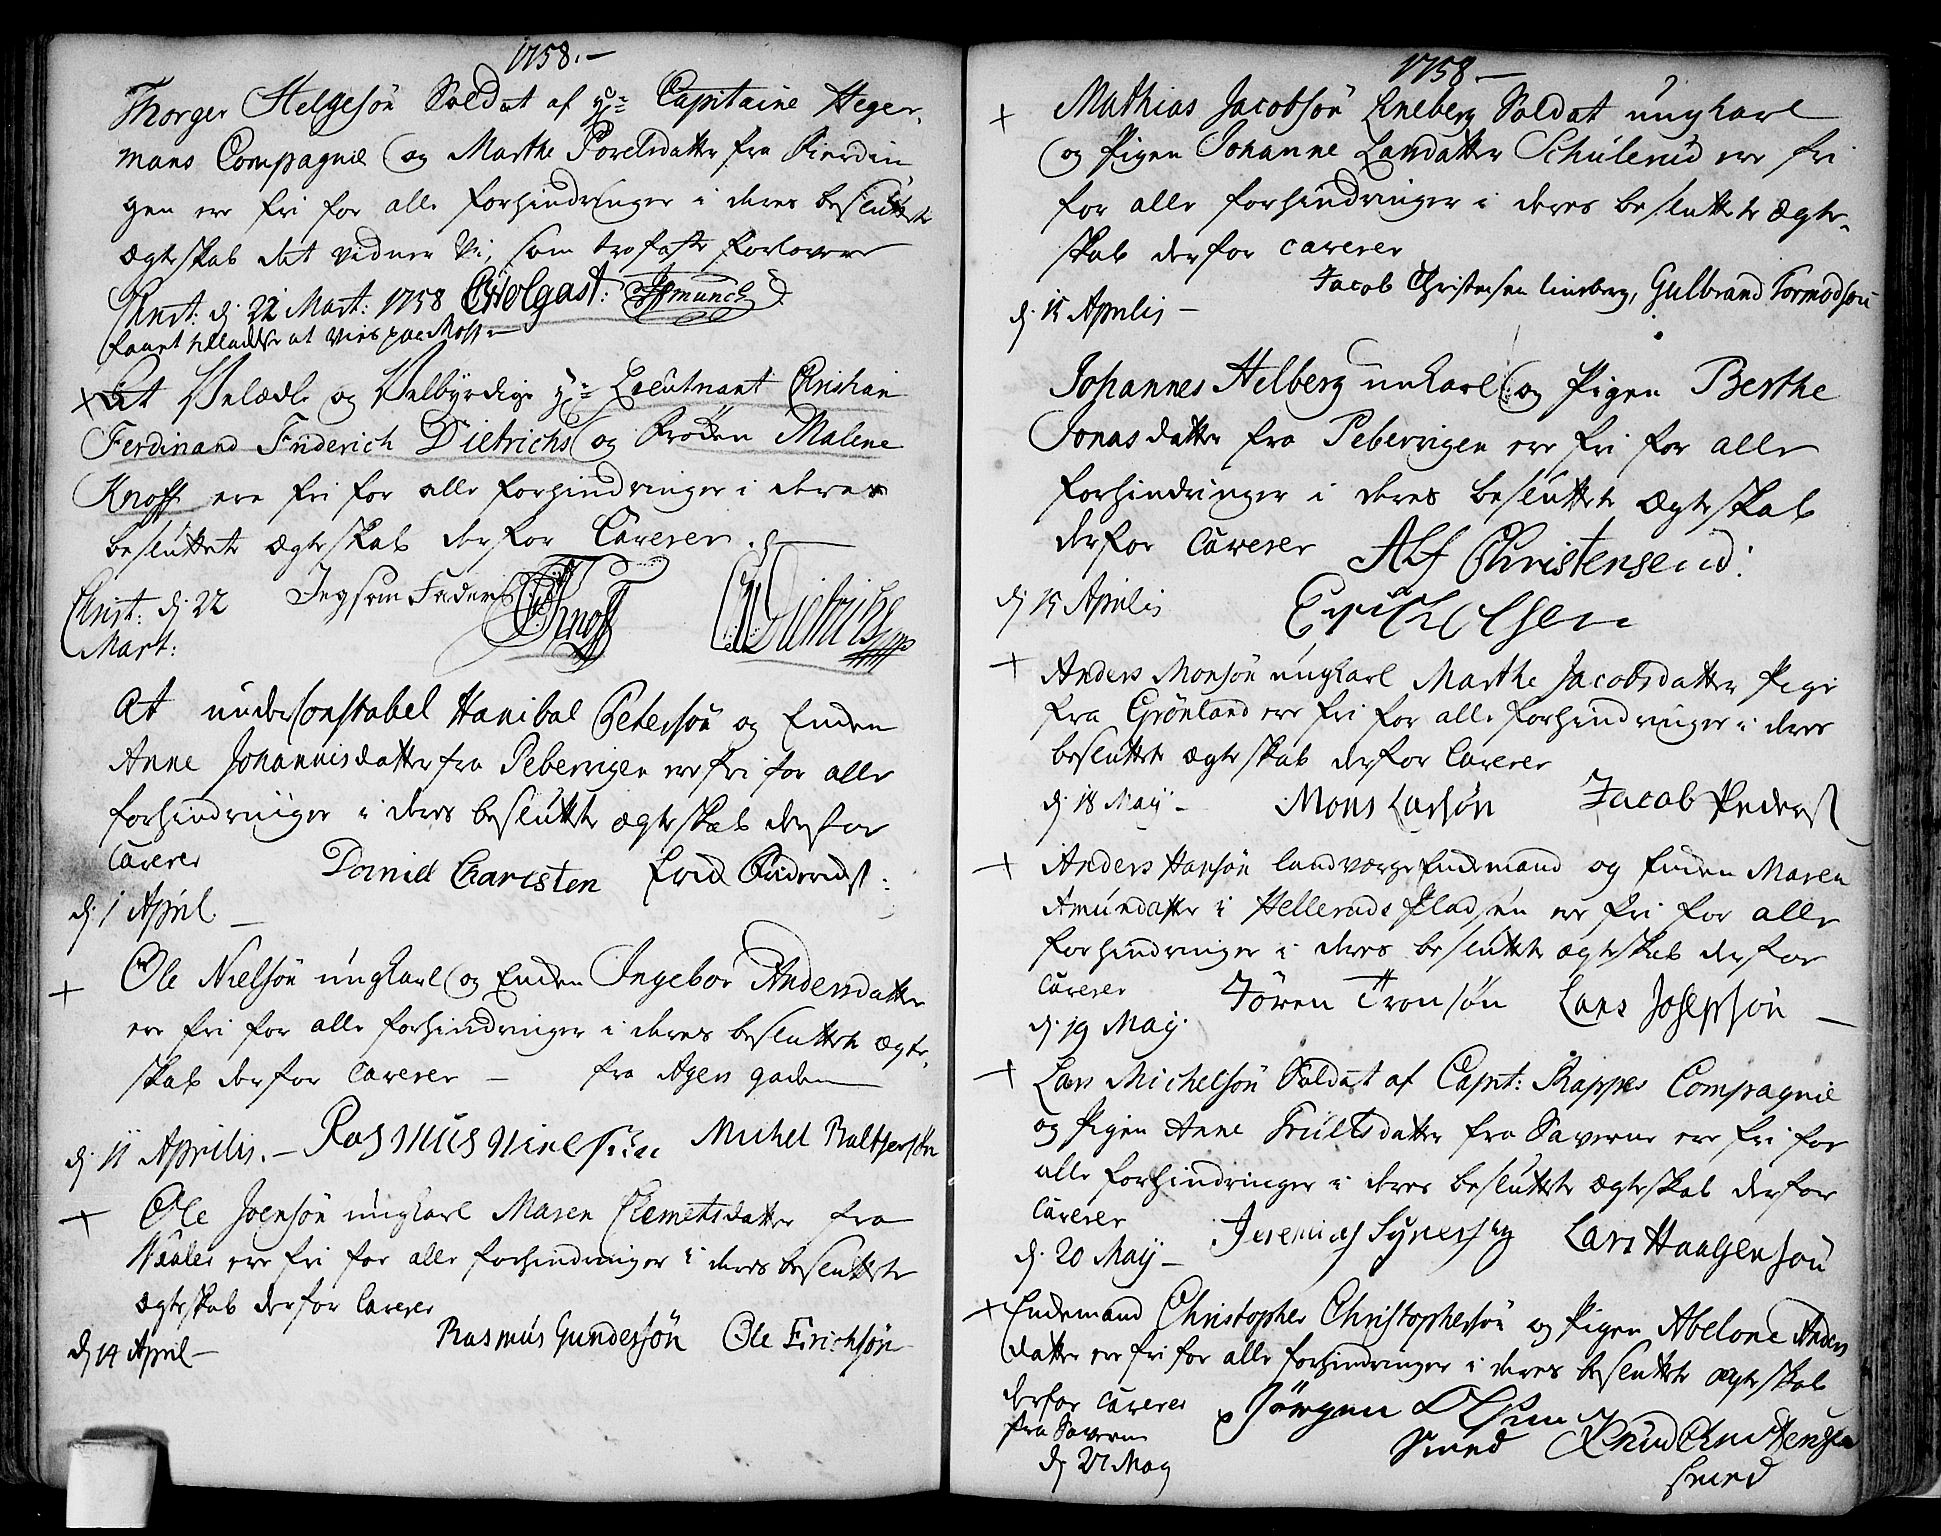 1758.–
Thorger Helgesön Soldat af Hr: Capitaine Heger-
mans Compagnie og Marthe Povelsdatter fra Fierdin
gen ere fri for alle forhindringer i deres besluttete
Ægteskab det vidner Vi, som trofaste Forlovere
Christ: d: 22 Mart: 1758 CWolgast: Munch
faaet tilladelse at vies paa Moss –
+ At Velædle og Velbyrdige Hr: Lieutnant Christian
Ferdinand Friderich Dietrichs og Frøken Malene
Knoff ere fri for alle forhindringer i deres
besluttete Ægteskab derfor Caverer
Christ: d: 22 Jeg som Fader Knoff Dietrichs
Mart:
At underConstabel Hanibal Petersön og Enken
Anne Johannisdatter fra Pebervigen ere fri for alle
forhindringer i deres besluttete ægteskab derfor
Caverer Daniel Charisten Friderichs:
d: 1 April –
+ Ole Nielsön ungkarl og Enken Ingebor Andersdatter
ere fri for alle forhindringer i deres besluttete ægte-
skab derfor Caverer – fra Agers gaden
d: 11 Aprilis. – Rasmus Nielsön Michel Baltzersön
+ Ole Joensön ungkarl Maren Clemetsdatter fra
Vaaler ere fri for alle forhindringer i deres besluttete
Ægteskab derfor Caverer
d 14 April – Rasmus Gundersön Ole Erichsön
1758 –
+ Mathias Jacobsön Lineberg Soldat ungkarl
og Pigen Johanne Larsdatter Schulerud ere fri
for alle forhindringer i deres besluttete Ægte-
skab derfor caverer
Jacob Christensen Lineberg, Gulbrand Tormodsön
d: 15 Aprilis –
Johannes Helberg unkarl og Pigen Berthe
Jonasdatter fra Pebervigen ere fri for alle
forhindringer i deres besluttete Ægteskab
derfor Caverer Alf Christensend:
d: 15 Aprilis Erich Olsen
+ Anders Monsön ungkarl Marthe Jacobsdatter Pige
fra Grönland ere fri for alle forhindringer i deres
besluttete ægteskab derfor Caverer
d: 18 Maij – Mons Larsön Jacob Peders
+ Anders Hansön landværge Enkemand og Enken Maren
Amundatter i Hellerudspladsen ere fri for alle
forhindringer i deres besluttete ægteskab derfor
Caverer Sören Tronsön Lars Josepsön –
d: 19 Maij.
+ Lars Michelsön Soldat af Capt: Rappes Compagnie
og Pigen Anne Truelsdatter fra Saverne ere fri for
alle forhindringer i deres besluttete Ægteskab derfor
Caverer Jeremias Lars Haagensön
d: 20 Maij –
+ Enkemand Christopher Christophersön og Pigen Abelone Anders
datter ere fri for alle forhindringer i deres besluttete ægteskab
derfor Caverer Jörgen Olsen
fra Saverne Smed Knud Christensen
d 27 May smed